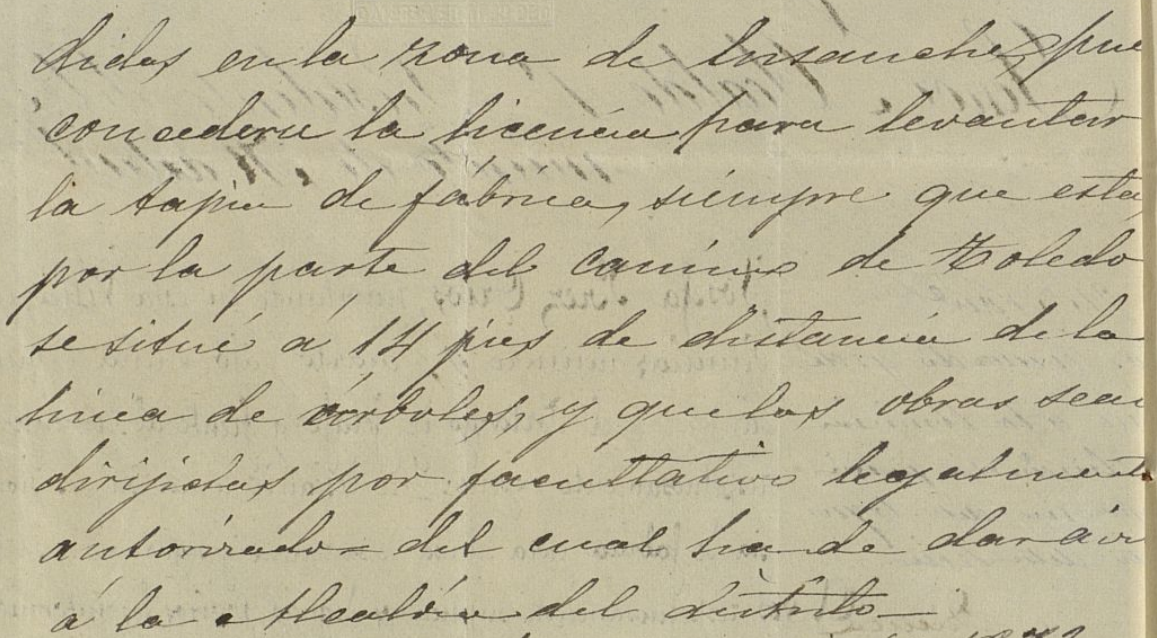 didas en la zona de Ensanche, pue
concederse la licencia para levantar
la tapia de fábrica, siempre que esta,
por la parte del camino de Toledo
se situé á 14 pies de distancia de la
linea de árboles, y que las obras sean
dirijidas por facultativo legalmente
autorizado = del cual ha de dar avi
á la Alcaldía del distrito—